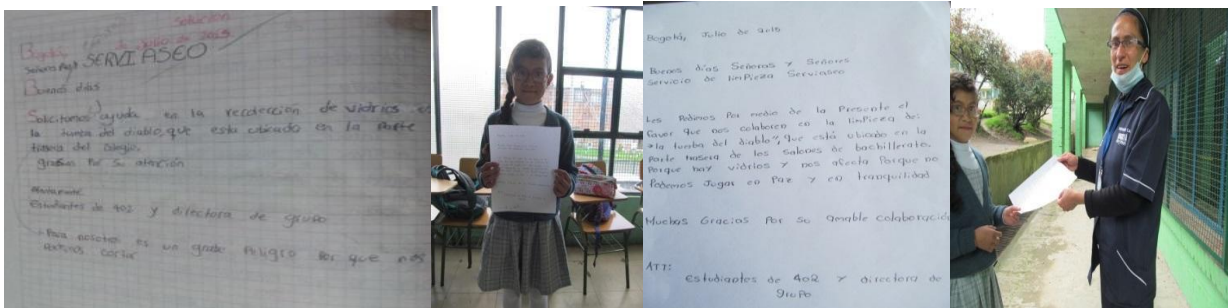 Solicitud
Bogotá, Julio 2015
SERVIASEO
Buenos días
Solicitamos ayuda en la recolección de vidrios
la tumba del diablo, que esta ubicado en la Parte
trasera del colegio.
gracias Por su atención
Atentamente
Estudiantes de 402 y directora de grupo
Para nosotros es un grade Peligro Por que nos
cortar
Bogotá, Julio de 2015
Buenos días Señoras y Señores
Servicio de limpieza Serviaseo
Les Pedimos Por medio de la Presente el
favor que nos colaboren en la limpieza de:
"la tumba del diablo", que está ubicado en la
Parte trasera de los salones de bachillerato.
Porque hay vidrios y nos afecta Porque no
Podemos Jugar en Paz y en tranquilidad.
Muchas Gracias Por su amable colaboració
ATT:
Estudiantes de 402 y directora de
grupo